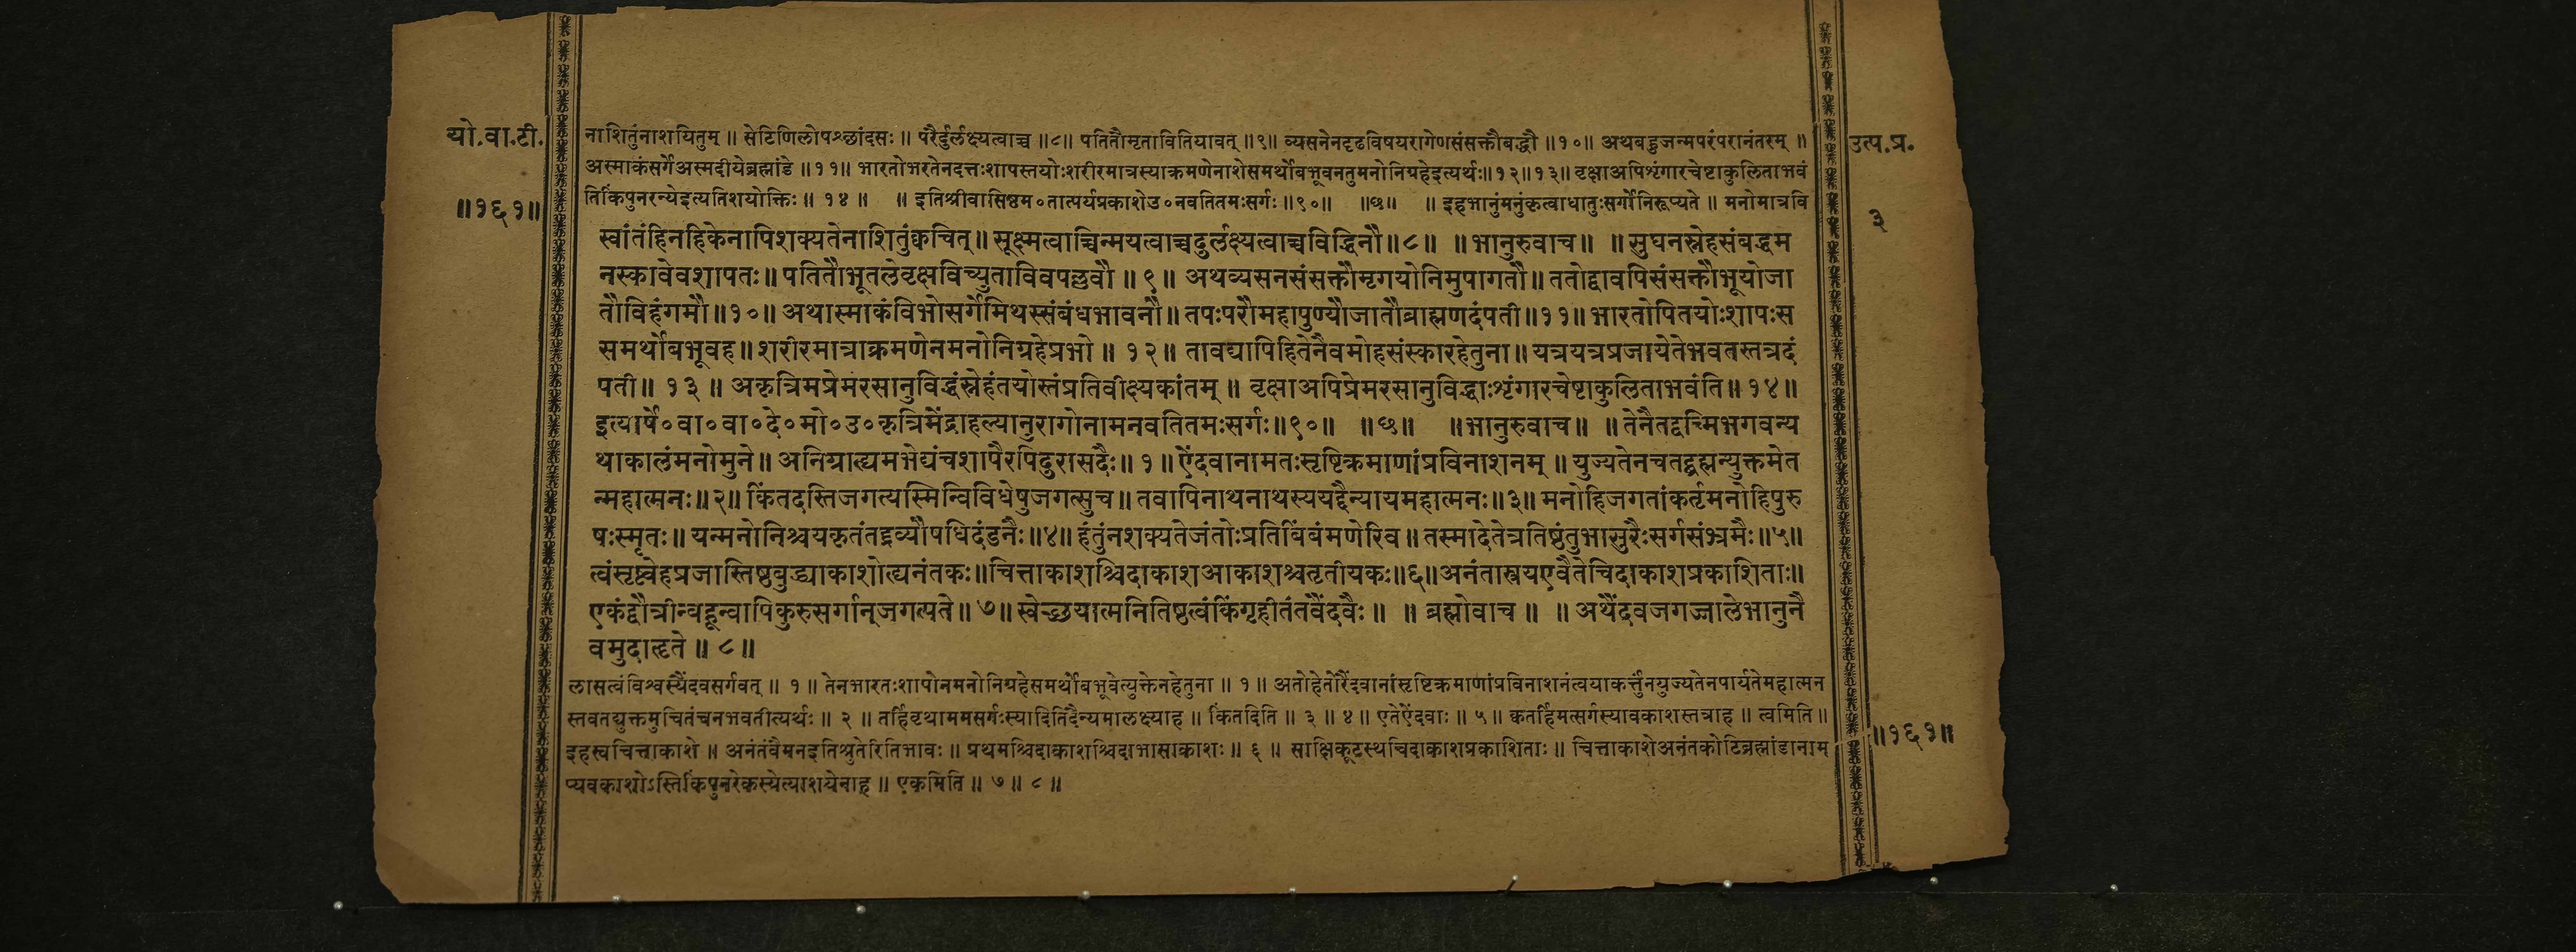 यो.वा.टी.
॥१६१॥
उत्प.प्र.
३
नाशितुंनाशयितुम् ॥ सेटिणिलोपश्छांदसः ॥ परैर्दुर्लक्ष्यत्वाच्च ॥८॥ पतितौमृतावितियावत् ॥९॥ व्यसनेनदृढविषयरागेणसंसक्तौबद्धौ ॥१०॥ अथबहुजन्मपरंपरानंतरम् ॥
अस्माकंसर्गेअस्मदीयेब्रह्मांडे ॥११॥ भारतोभरतेनदत्तःशापस्तयोःशरीरमात्रस्याक्रमणेनाशेसमर्थोबभूवनतुमनोनिग्रहेइत्यर्थः॥१२॥१३॥ वृक्षाअपिशृंगारचेष्टाकुलिताभवं
तिकिंपुनरन्येइत्यतिशयोक्तिः ॥ १४ ॥ ॥ इतिश्रीवासिष्ठम॰तात्पर्यप्रकाशेउ॰नवतितमःसर्गः ॥९०॥ ॥७॥ ॥ इहभानुंमनुंकृत्वाधातुःसर्गोनिरूप्यते ॥ मनोमात्रवि
स्वांतंहिनहिकेनापिशक्यतेनाशितुंक्वचित् ॥ सूक्ष्मत्वाच्चिन्मयत्वाच्चदुर्लक्ष्यत्वाच्चविद्धिनौ ॥८॥ ॥ भानुरुवाच ॥ ॥ सुघनस्नेहसंबद्धम
नस्कावेवशापतः ॥ पतितौभूतलेवृक्षविच्युताविवपल्लवौ ॥ ९ ॥ अथव्यसनसंसक्तौमृगयोनिमुपागतौ ॥ ततोद्वावपिसंसक्तौभूयोजा
तौविहंगमौ ॥१०॥ अथास्माकंविभोसर्गेमिथस्संबंधभावनौ ॥ तपःपरौमहापुण्यौजातौब्राह्मणदंपती ॥११॥ भारतोपितयोःशापःस
समर्थोबभूवह ॥ शरीरमात्राक्रमणेनमनोनिग्रहेप्रभो ॥ १२ ॥ तावद्यापिहितेनैवमोहसंस्कारहेतुना ॥ यत्रयत्रप्रजायेतेभवतस्तत्रदं
पती ॥ १३ ॥ अकृत्रिमप्रेमरसानुविद्धंस्नेहंतयोस्तंप्रतिवीक्ष्यकांतम् ॥ वृक्षाअपिप्रेमरसानुविद्धाःशृंगारचेष्टाकुलिताभवंति ॥ १४ ॥
इत्यार्षे॰वा॰वा॰दे॰मो॰उ॰कृत्रिमेंद्राहल्यानुरागोनामनवतितमःसर्गः ॥९०॥ ॥७॥ ॥ भानुरुवाच ॥ ॥ तेनैतद्वच्मिभगवन्य
थाकालंमनोमुने ॥ अनिग्राह्यमभेद्यंचशापैरपिदुरासदैः ॥ १ ॥ ऐंदवानामतःसृष्टिक्रमाणांप्रविनाशनम् ॥ युज्यतेनचतद्ब्रह्मन्युक्तमेत
न्महात्मनः ॥२॥ किंतदस्तिजगत्यस्मिन्विविधेषुजगत्सुच ॥ तवापिनाथनाथस्ययद्दैन्यायमहात्मनः ॥३॥ मनोहिजगतांकर्तृमनोहिपुरु
षःस्मृतः ॥ यन्मनोनिश्चयकृतंतद्द्रव्यौषधिदंडनैः ॥४॥ हंतुंनशक्यतेजंतोःप्रतिबिंबंमणेरिव ॥ तस्मादेतेत्रतिष्ठंतुभासुरैःसर्गसंभ्रमैः ॥५॥
त्वंसृष्ट्वेहप्रजास्तिष्ठबुद्ध्याकाशोह्यनंतकः ॥ चित्ताकाशश्चिदाकाशआकाशश्चतृतीयकः ॥६॥ अनंतास्त्रयएवैतेचिदाकाशप्रकाशिताः ॥
एकंद्वौत्रीन्बहून्वापिकुरुसर्गान्जगत्पते ॥ ७ ॥ स्वेच्छयात्मनितिष्ठत्वंकिंगृहीतंतवैंदवैः ॥ ॥ ब्रह्मोवाच ॥ ॥ अथैंदवजगज्जालेभानुनै
वमुदाहृते ॥ ८ ॥
लासत्वंविश्वस्यैंदवसर्गवत् ॥ १ ॥ तेनभारतःशापोनमनोनिग्रहेसमर्थोबभूवेत्युक्तेनहेतुना ॥ १ ॥ अतोहेतोरैंदवानांसृष्टिक्रमाणांप्रविनाशनंत्वयाकर्त्तुंनयुज्यतेनपार्यतेमहात्मन
स्तवतद्युक्तमुचितंचनभवतीत्यर्थः ॥ २ ॥ तर्हिवृथाममसर्गःस्यादितिदैन्यमालक्ष्याह ॥ किंतदिति ॥ ३ ॥ ४ ॥ एतेऐंदवाः ॥ ५ ॥ क्वतर्हिमत्सर्गस्यावकाशस्तत्राह ॥ त्वमिति ॥
इहस्वचित्ताकाशे ॥ अनंतंवैमनइतिश्रुतेरितिभावः ॥ प्रथमश्चिदाकाशश्चिदाभासाकाशः ॥ ६ ॥ साक्षिकूटस्थचिदाकाशप्रकाशिताः ॥ चित्ताकाशेअनंतकोटिब्रह्मांडानाम
प्यवकाशोऽस्तिकिंपुनरेकस्येत्याशयेनाह ॥ एकमिति ॥ ७ ॥ ८ ॥
॥१६१॥